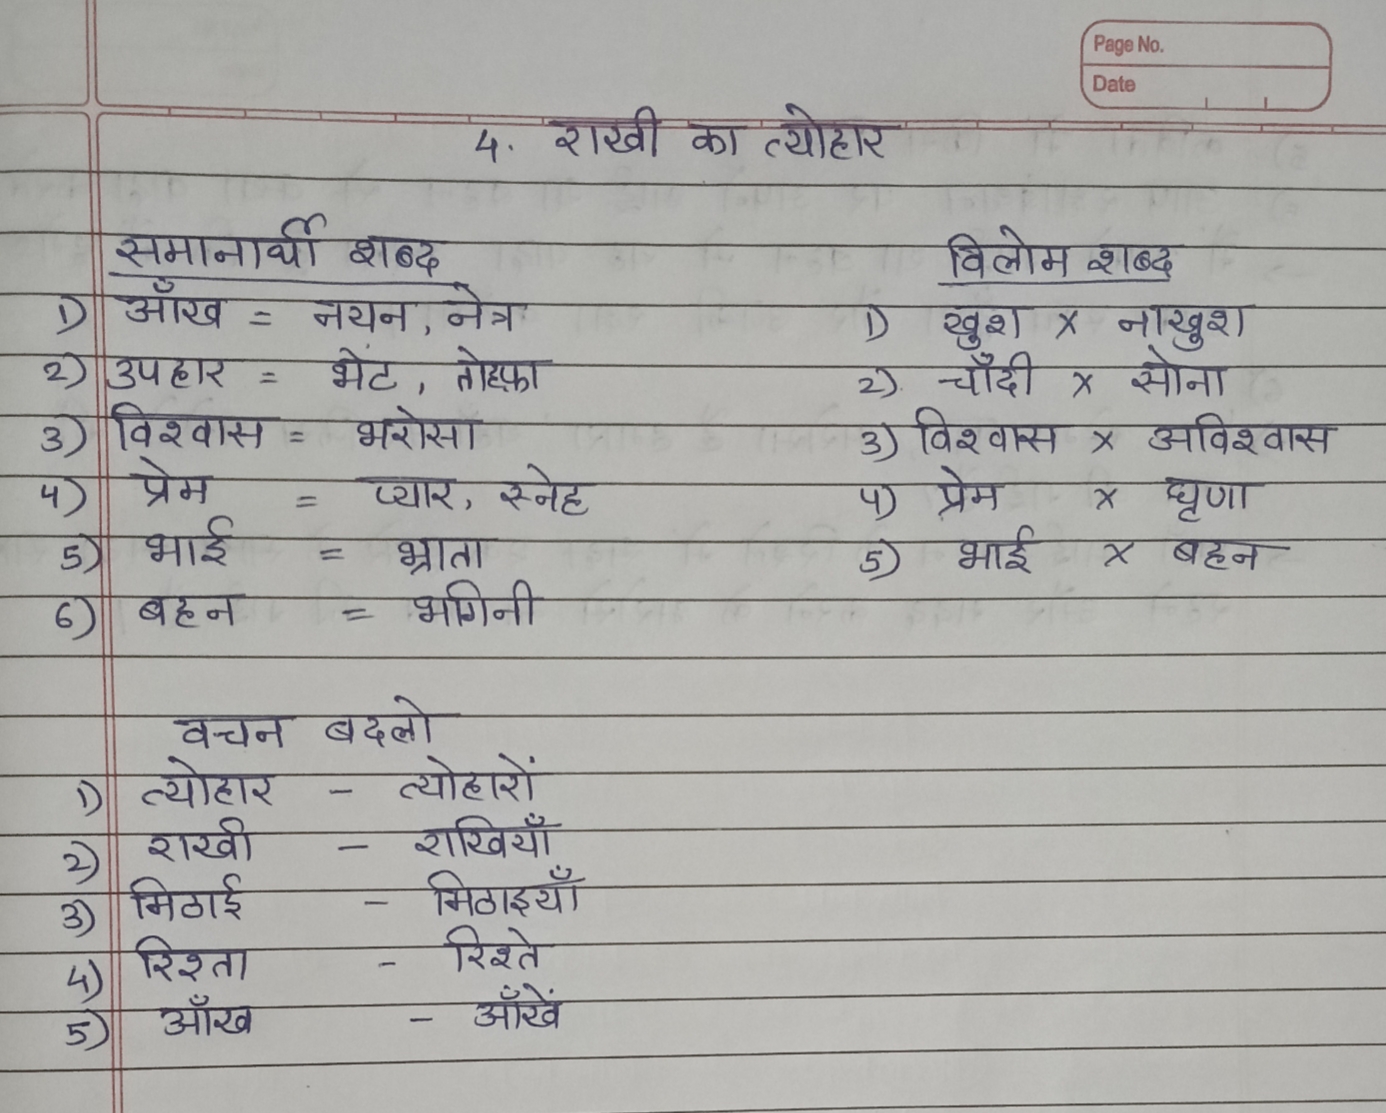 Page No.
Date
4. राखी का त्योहार
समानार्थी शब्द
1) आँख = नयन, नेत्र
2) उपहार = भेंट, तोहफ़ा
3) विश्वास = भरोसा
4) प्रेम = प्यार, स्नेह
5) भाई = भ्राता
6) बहन = भगिनी
विलोम शब्द
1) खुश x नाखुश
2). चाँदी x सोना
3) विश्वास x अविश्वास
4) प्रेम x घृणा
5) भाई x बहन
वचन बदलो
1) त्योहार - त्योहारों
2) राखी - राखियाँ
3) मिठाई - मिठाइयाँ
4) रिश्ता - रिश्ते
5) आँख - आँखें